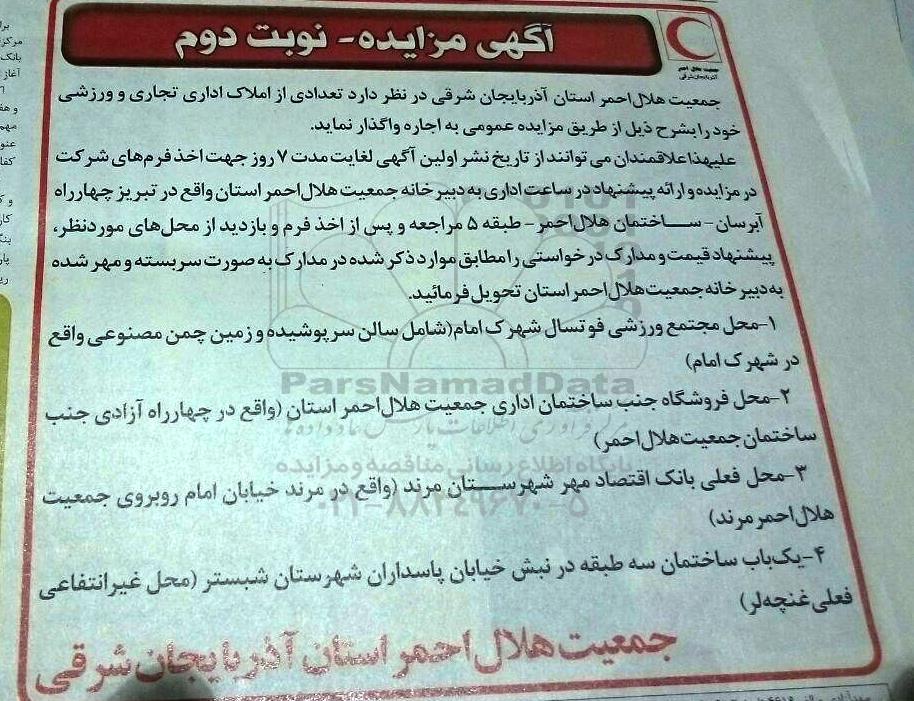 آگهی مزایده - نوبت دوم
جمعیت هلال احمر
آذربایجان شرقی
جمعیت هلال احمر استان آذربایجان شرقی در نظر دارد تعدادی از املاک اداری تجاری و ورزشی
خود را بشرح ذیل از طریق مزایده عمومی به اجاره واگذار نماید.
علیهذا علاقمندان می توانند از تاریخ نشر اولین آگهی لغایت مدت ۷ روز جهت اخذ فرم‌های شرکت
در مزایده و ارائه پیشنهاد در ساعت اداری به دبیر خانه جمعیت هلال احمر استان واقع در تبریز چهارراه
آبرسان - ساختمان هلال احمر - طبقه ۵ مراجعه و پس از اخذ فرم و بازدید از محل‌های موردنظر،
پیشنهاد قیمت و مدارک درخواستی را مطابق موارد ذکر شده در مدارک به صورت سربسته و مهر شده
به دبیر خانه جمعیت هلال احمر استان تحویل فرمائید.
۱-محل مجتمع ورزشی فوتسال شهرک امام(شامل سالن سرپوشیده و زمین چمن مصنوعی واقع
در شهرک امام)
۲-محل فروشگاه جنب ساختمان اداری جمعیت هلال احمر استان (واقع در چهارراه آزادی جنب
ساختمان جمعیت هلال احمر)
۳-محل فعلی بانک اقتصاد مهر شهرستان مرند (واقع در مرند خیابان امام روبروی جمعیت
هلال احمر مرند)
۴-یک‌باب ساختمان سه طبقه در نبش خیابان پاسداران شهرستان شبستر (محل غیرانتفاعی
فعلی غنچه‌لر)
جمعیت هلال احمر استان آذربایجان شرقی
ParsNamadData
پایگاه اطلاع رسانی مناقصه و مزایده
۰۲۱-۸۸۳۴۹۶۷۰-۵